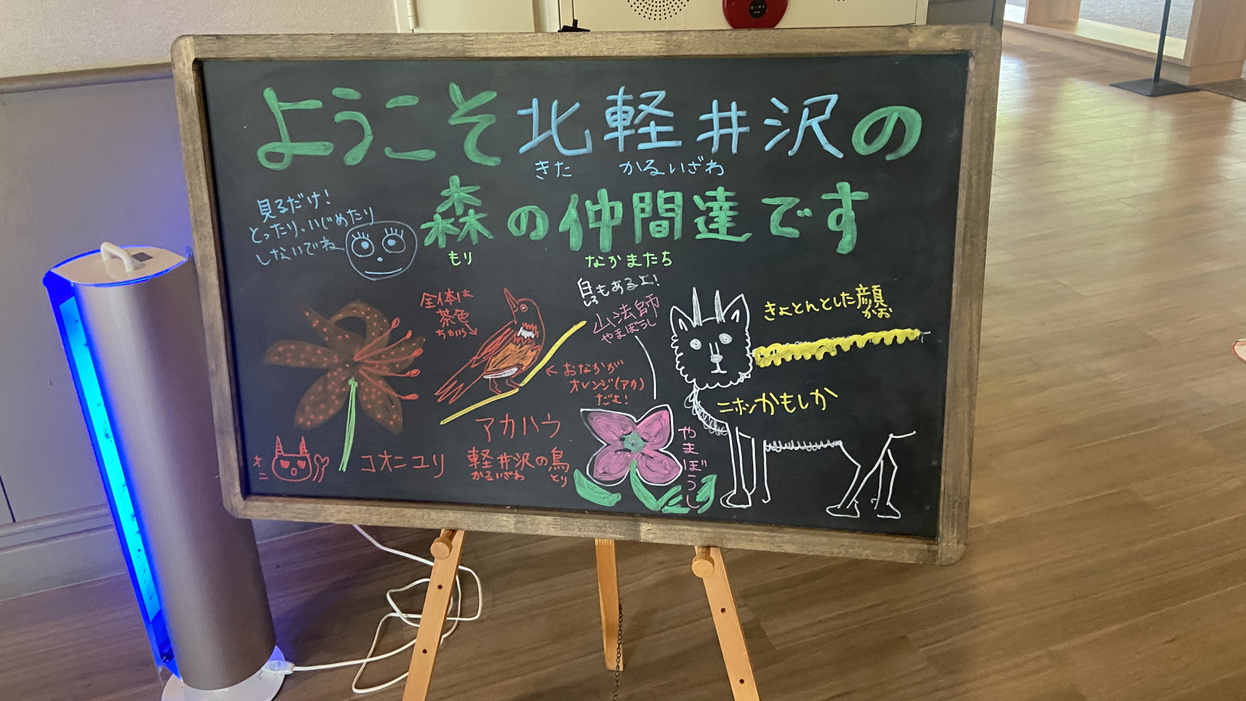 ようこそ北軽井沢の
きた かるいざわ
森の仲間達です
もり なかまたち
見るだけ!
とったり、いじめたり
しないでね
全体は
茶色
ちゃいろ
白もあるよ!
山法師
やまぼうし
きょとんとした顔
かお
おなかが
オレンジ(アカ)
だよ!
ニホンかもしか
アカハラ
軽井沢の鳥
かるいざわ とり
コオニユリ
オニ
やまぼうし